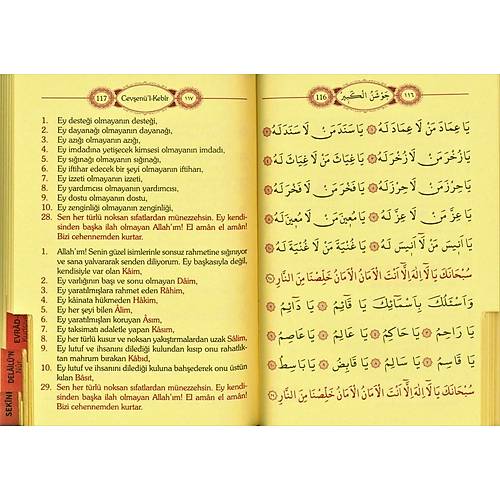 117 Cevşenü'l-Kebîr ١١٧
1. Ey desteği olmayanın desteği,
2. Ey dayanağı olmayanın dayanağı,
3. Ey azığı olmayanın azığı,
4. Ey imdadına yetişecek kimsesi olmayanın imdadı,
5. Ey sığınağı olmayanın sığınağı,
6. Ey iftihar edecek bir şeyi olmayanın iftiharı,
7. Ey izzeti olmayanın izzeti,
8. Ey yardımcısı olmayanın yardımcısı,
9. Ey dostu olmayanın dostu,
10. Ey zenginliği olmayanın zenginliği,
28. Sen her türlü noksan sıfatlardan münezzehsin. Ey kendi-
sinden başka ilah olmayan Allah'ım! El amân el amân!
Bizi cehennemden kurtar.
1. Allah'ım! Senin güzel isimlerinle sonsuz rahmetine sığınıyor
ve sana yalvararak senden diliyorum. Ey başkasıyla değil,
kendisiyle var olan Kâim,
2. Ey varlığının başı ve sonu olmayan Dâim,
3. Ey yaratılmışlara rahmet eden Râhim,
4. Ey kâinata hükmeden Hâkim,
5. Ey her şeyi bilen Âlim,
6. Ey yaratılmışları koruyan Âsım,
7. Ey taksimatı adaletle yapan Kâsım,
8. Ey her türlü kusur ve noksan yakıştırmalardan uzak Sâlim,
9. Ey lutuf ve ihsanını dilediği kulundan kısıp onu rahatlık-
tan mahrum bırakan Kâbıd,
10. Ey lutuf ve ihsanını dilediği kuluna bahşederek onu üstün
kılan Bâsıt,
29. Sen her türlü noksan sıfatlardan münezzehsin. Ey kendi-
sinden başka ilah olmayan Allah'ım! El amân el amân!
Bizi cehennemden kurtar.
EVRÂD-
DELÂİLÜ'N
NÛR
SEKÎNE
116 جَوْشَنُ الْكَبِيرِ ١١٦
يَا عِمَادَ مَنْ لَا عِمَادَ لَهُ يَا سَنَدَ مَنْ لَا سَنَدَ لَهُ
يَا ذُخْرَ مَنْ لَا ذُخْرَ لَهُ يَا غِيَاثَ مَنْ لَا غِيَاثَ لَهُ
يَا حِرْزَ مَنْ لَا حِرْزَ لَهُ يَا فَخْرَ مَنْ لَا فَخْرَ لَهُ
يَا عِزَّ مَنْ لَا عِزَّ لَهُ يَا مُعِينَ مَنْ لَا مُعِينَ لَهُ
يَا اَنِيسَ مَنْ لَا اَنِيسَ لَهُ يَا غُنْيَةَ مَنْ لَا غُنْيَةَ لَهُ
سُبْحَانَكَ يَا لَا اِلٰهَ اِلَّا اَنْتَ الْاَمَانُ الْاَمَانُ خَلِّصْنَا مِنَ النَّارِ
وَاَسْئَلُكَ بِاَسْمَائِكَ يَا قَائِمُ يَا دَائِمُ
يَا رَاحِمُ يَا حَاكِمُ يَا عَالِمُ يَا عَاصِمُ
يَا قَاسِمُ يَا سَالِمُ يَا قَابِضُ يَا بَاسِطُ
سُبْحَانَكَ يَا لَا اِلٰهَ اِلَّا اَنْتَ الْاَمَانُ الْاَمَانُ خَلِّصْنَا مِنَ النَّارِ